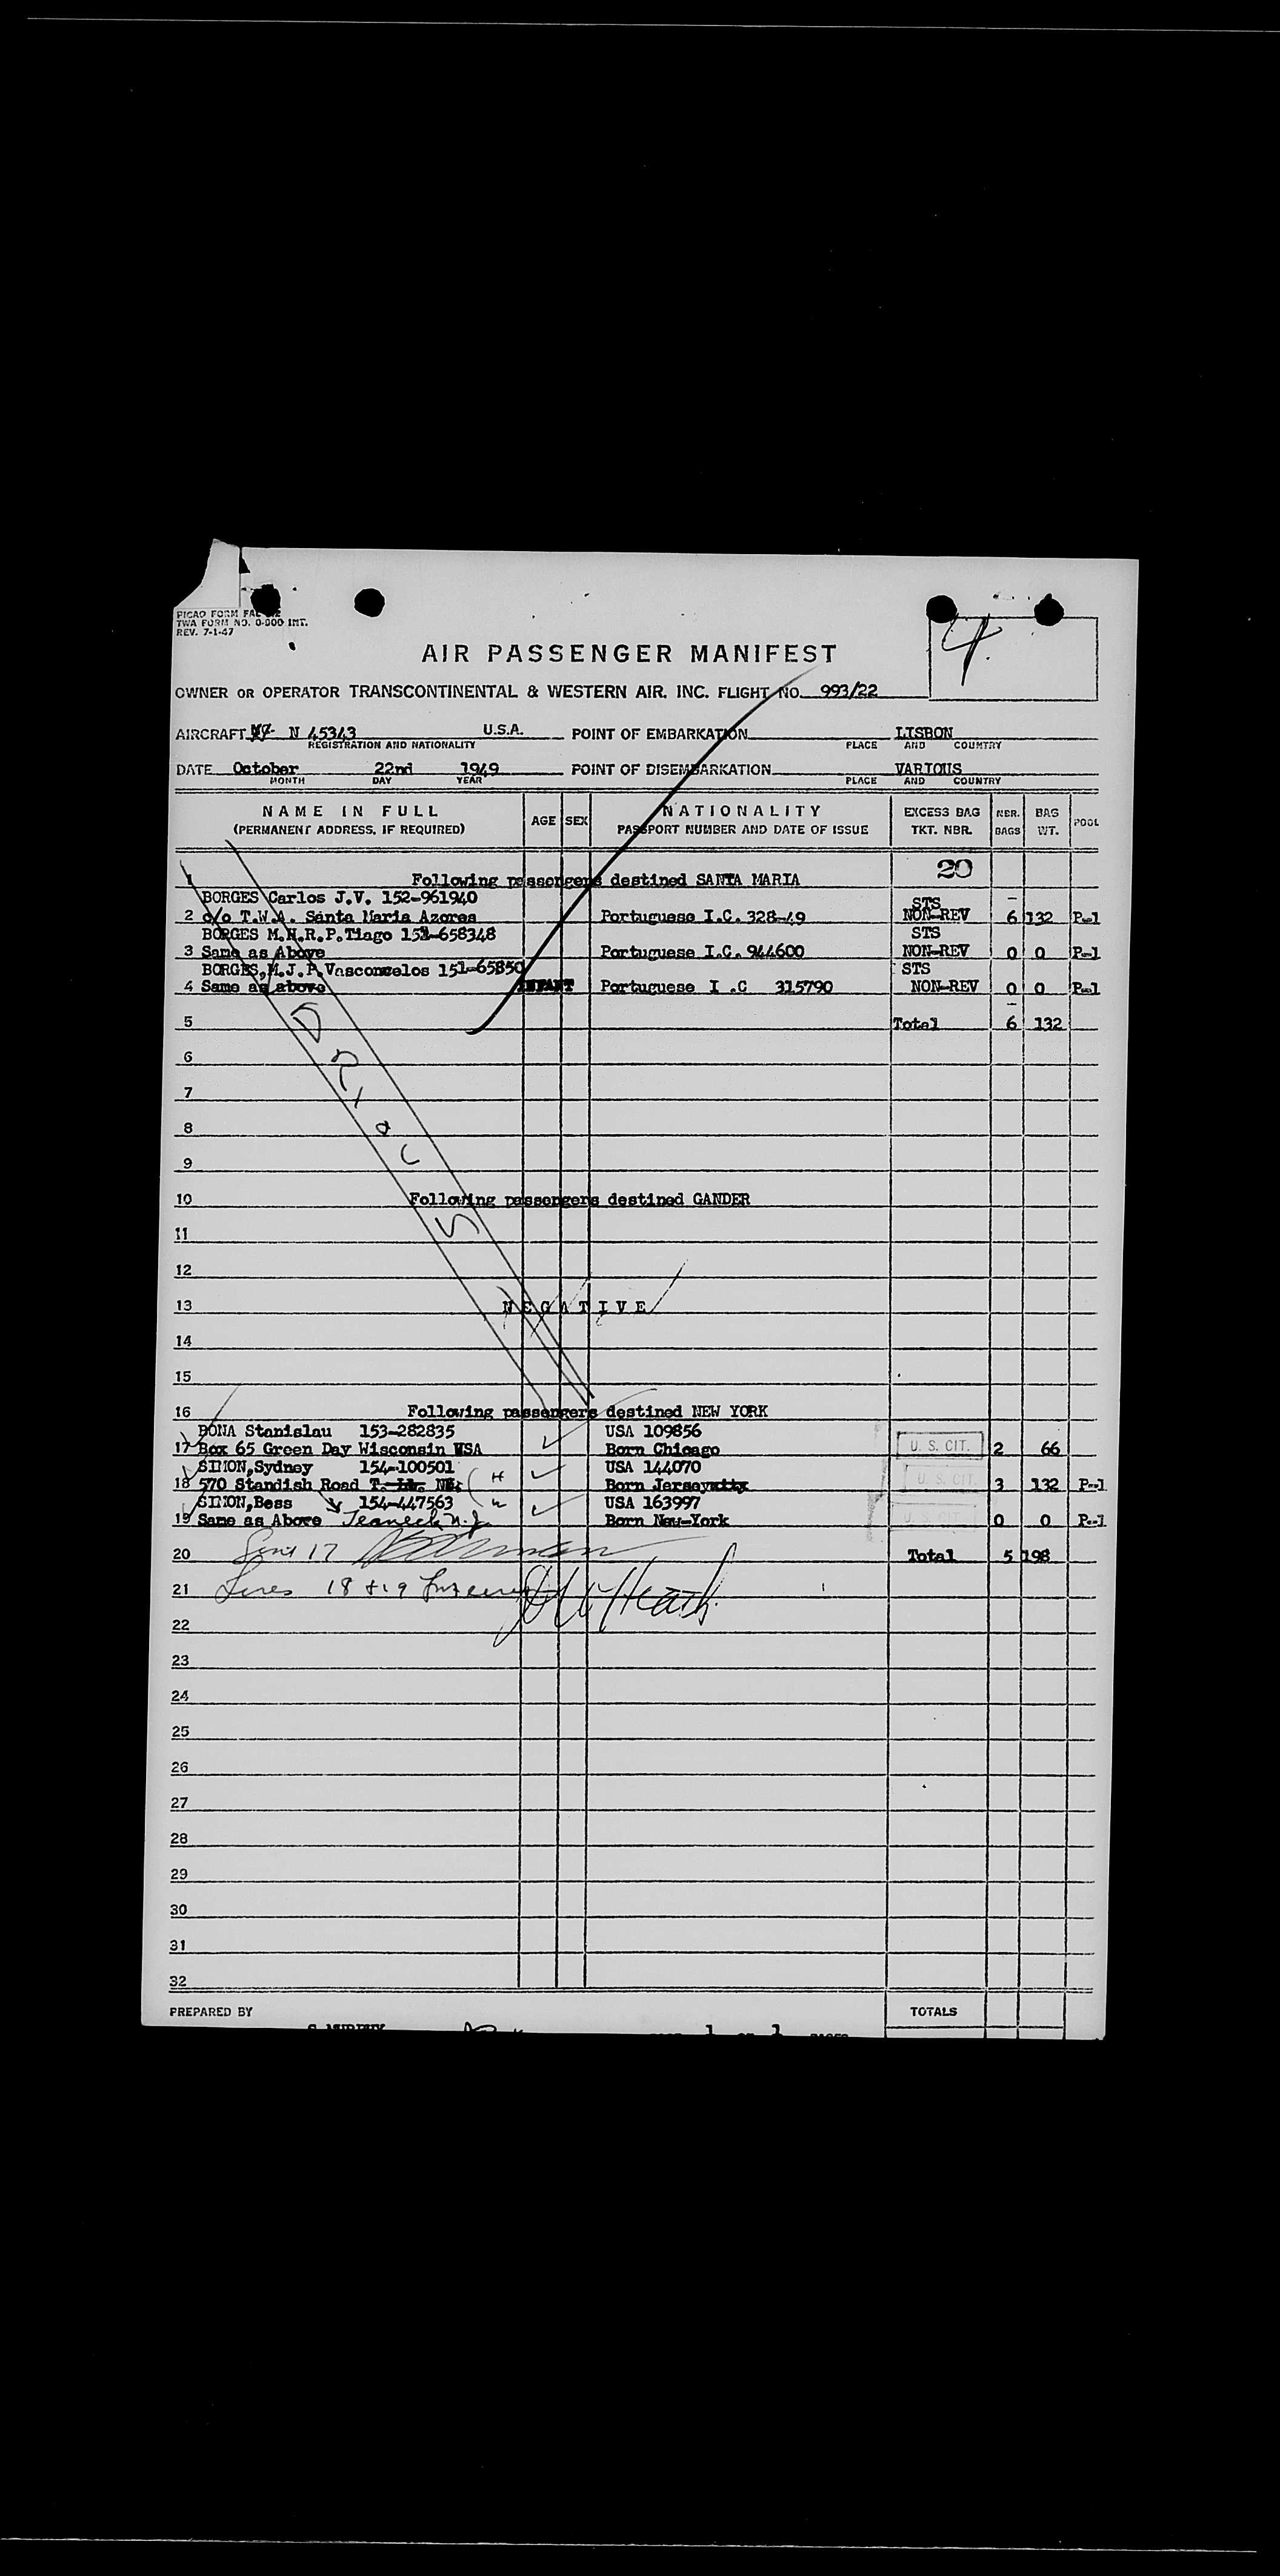 PICAO FORM FAL
TWA FORM NO. 0-000 INT.
REV. 7-1-47
4.
AIR PASSENGER MANIFEST
OWNER OR OPERATOR TRANSCONTINENTAL & WESTERN AIR, INC. FLIGHT NO. 993/22
AIRCRAFT N 45343 U.S.A. POINT OF EMBARKATION LISBON
REGISTRATION AND NATIONALITY PLACE AND COUNTRY
DATE October 22nd 1949 POINT OF DISEMBARKATION VARIOUS
MONTH DAY YEAR PLACE AND COUNTRY
NAME IN FULL AGE SEX NATIONALITY EXCESS BAG NBR. BAG POOL
(PERMANENT ADDRESS, IF REQUIRED) PASSPORT NUMBER AND DATE OF ISSUE TKT. NBR. BAGS WT.
20
1 Following passengers destined SANTA MARIA
BORGES Carlos J.V. 152-961940 STS
2 c/o T.W.A. Santa Maria Azores Portuguese I.C. 328-49 NON-REV 6 132 P-1
BORGES M.H.R.P.Tiago 151-658348 STS
3 Same as Above Portuguese I.C. 944600 NON-REV 0 0 P-1
BORGES,M.J.P.Vasconcelos 151-65850 STS
4 Same as above INFANT Portuguese I .C 315790 NON-REV 0 0 P-1
5 Total 6 132
6
7
8
9
10 Following passengers destined GANDER
11
12
13 NEGATIVE
14
15
16 Following passengers destined NEW YORK
BONA Stanislau 153-282835 USA 109856
17 Box 65 Green Day Wisconsin USA Born Chicago U. S. CIT. 2 66
SIMON,Sydney 154-100501 USA 144070
18 570 Standish Road H Born Jerseycitty U. S. CIT. 3 132 P-1
SIMON,Bess 154-447563 W USA 163997
19 Same as Above Teaneck N.J. Born New-York U. S. CIT. 0 0 P-1
20 Line 17 Total 5 198
21 Lines 18 & 19 Heath
22
23
24
25
26
27
28
29
30
31
32
PREPARED BY TOTALS
S MURPHY 1 1 PAGES